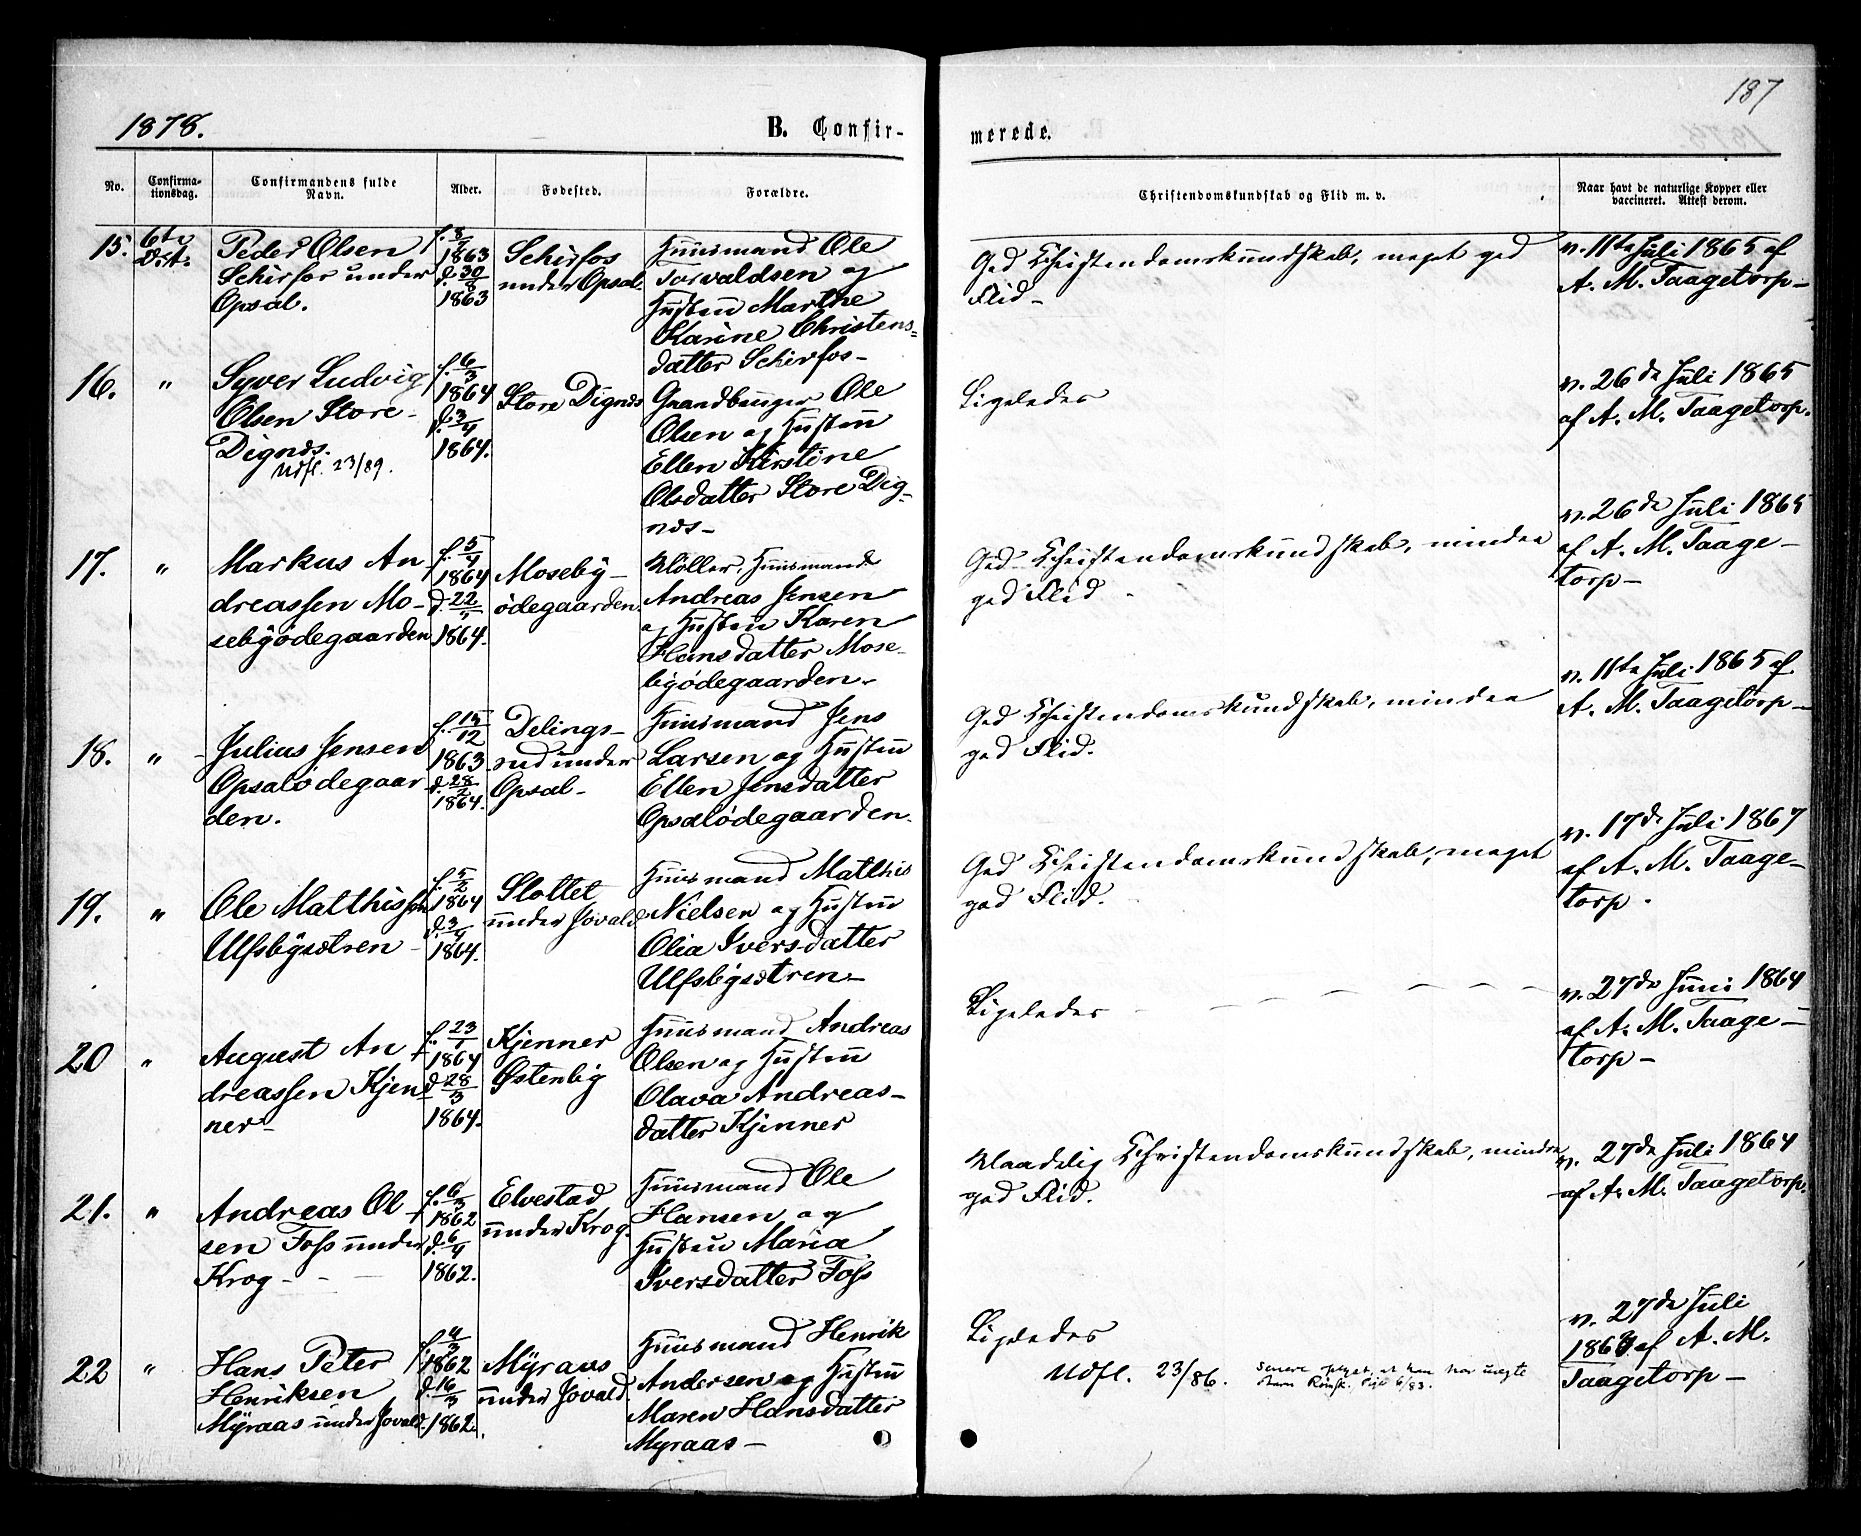 187
1878.
B. Confir-
merede.
No.
Confirma-
tionsdag.
Confirmandens fulde
Navn.
Alder.
Fødested.
Forældre.
Christendomskundskab og Flid m. v.
Naar havt de naturlige Kopper eller
vaccineret. Attest derom.
15.
6te
Oct.
Peder Olsen
Schirfos under
Opsal.
f. 8/7
1863
d. 30/8
1863
Schirfos
under Opsal.
Huusmand Ole
Torvaldsen og
Hustru Marthe
Karine Christens-
datter Schirfos-
God Christendomskundskab, meget god
Flid-
v. 11te Juli 1865 af
A. M. Taagetorp-
16.
"
Syver Ludvig
Olsen Store-
Dignæs.
Udfl. 23/89.
f. 6/3
1864
d. 3/4
1864.
Store Dignæs
Gaardbruger Ole
Olsen og Hustru
Ellen Kirstine
Olsdatter Store Dig-
næs-
Ligeledes
v. 26de Juli 1865
af A. M. Taagetorp.
17.
"
Markus An-
dreassen Mo-
sebyødegaarden
f. 5/4
1864
d. 22/5
1864.
Moseby-
ødegaarden.
Møller, Huusmand
Andreas Jensen
og Hustru Karen
Hansdatter Mose-
byødegaarden.
God Christendomskundskab, mindre
god Flid
v. 26de Juli 1865
af A. M. Taage-
torp-
18.
"
Julius Jensen
Opsalødegaar-
den.
f. 15/12
1863
d. 28/2
1864.
Delings-
rud under
Opsal-
Huusmand Jens
Larsen og Hustru
Ellen Jensdatter
Opsalødegaarden.
God Christendomskundskab, mindre
god Flid.
v. 11te Juli 1865 af
A. M. Taagetorp-
19.
"
Ole Matthissen
Ulfsbysætren-
f. 5/2
1864
d. 3/4
1864.
Slottet
under Jovald
Huusmand Matthis
Nielsen og Hustru
Olia Iversdatter
Ulfsbysætren-
God Christendomskundskab, meget
god Flid.
v. 17de Juli 1867
af A. M. Taage-
torp.
20
"
August An-
dreassen Kjen-
ner-
f. 23/1
1864
d. 28/3
1864.
Kjenner
Østenby
Huusmand Andreas
Olsen og Hustru
Olava Andreas-
datter Kjenner
Ligeledes
v. 27de Juni 1864
af A. M. Taage-
torp-
21.
"
Andreas Ol-
sen Foss under
Krog-
f. 6/3
1862
d. 6/4
1862.
Elvestad
under Krog.
Huusmand Ole
Hansen og
Hustru Maria
Iversdatter Foss
Maadelig Christendomskundskab, mindre
god Flid.
v. 27de Juli 1864
af A. M. Taagetorp.
22
"
Hans Peter
Henriksen
Myraas under Jovald.
f. 4/3
1862
d. 16/3
1862.
Myraas
under Jovald.
Huusmand Henrik
Andersen og Hustru
Maren Hansdatter
Myraas-
Ligeledes
Udfl. 23/86.
senere oplyst, at han var uægte
v. 27de Juli
af A. M.
Taagetorp-